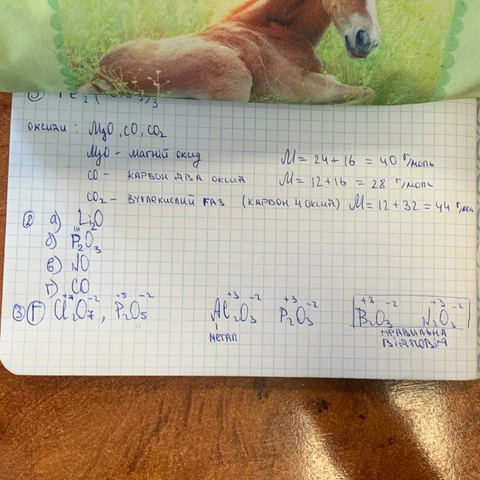 оксиди : MgO, CO, CO₂
MgO - магній оксид M = 24 + 16 = 40 г/моль
CO - карбон два оксид M = 12 + 16 = 28 г/моль
CO₂ - вуглекислий газ (карбон 4 оксид) M = 12 + 32 = 44 г/моль
② а) Li₂O
б) P₂O₃
в) NO
г) CO
③ Г Cl₂⁺⁷O₇⁻², P₂⁺⁵O₅⁻² Al₂⁺³O₃⁻² P₂⁺³O₃⁻² B₂⁺³O₃⁻² N₂⁺³O₃⁻²
метал правильна
відповідь